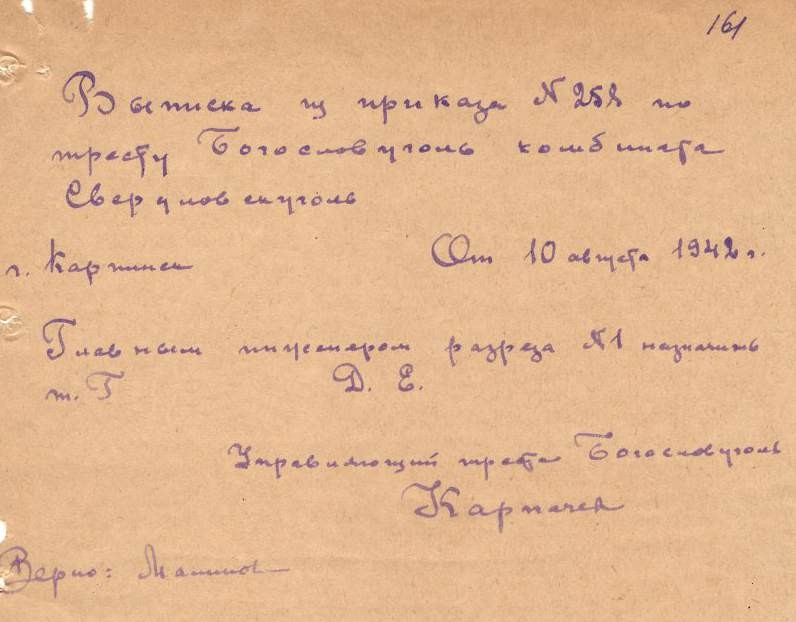 161
Выписка из приказа N 258 по
тресту Богословуголь комбината
Свердловскуголь
г. Карпинск От 10 августа 1942 г.
Главным инженером разреза N1 назначить
т. Г Д. Е.
Управляющий треста Богословуголь
Карпачев
Верно: